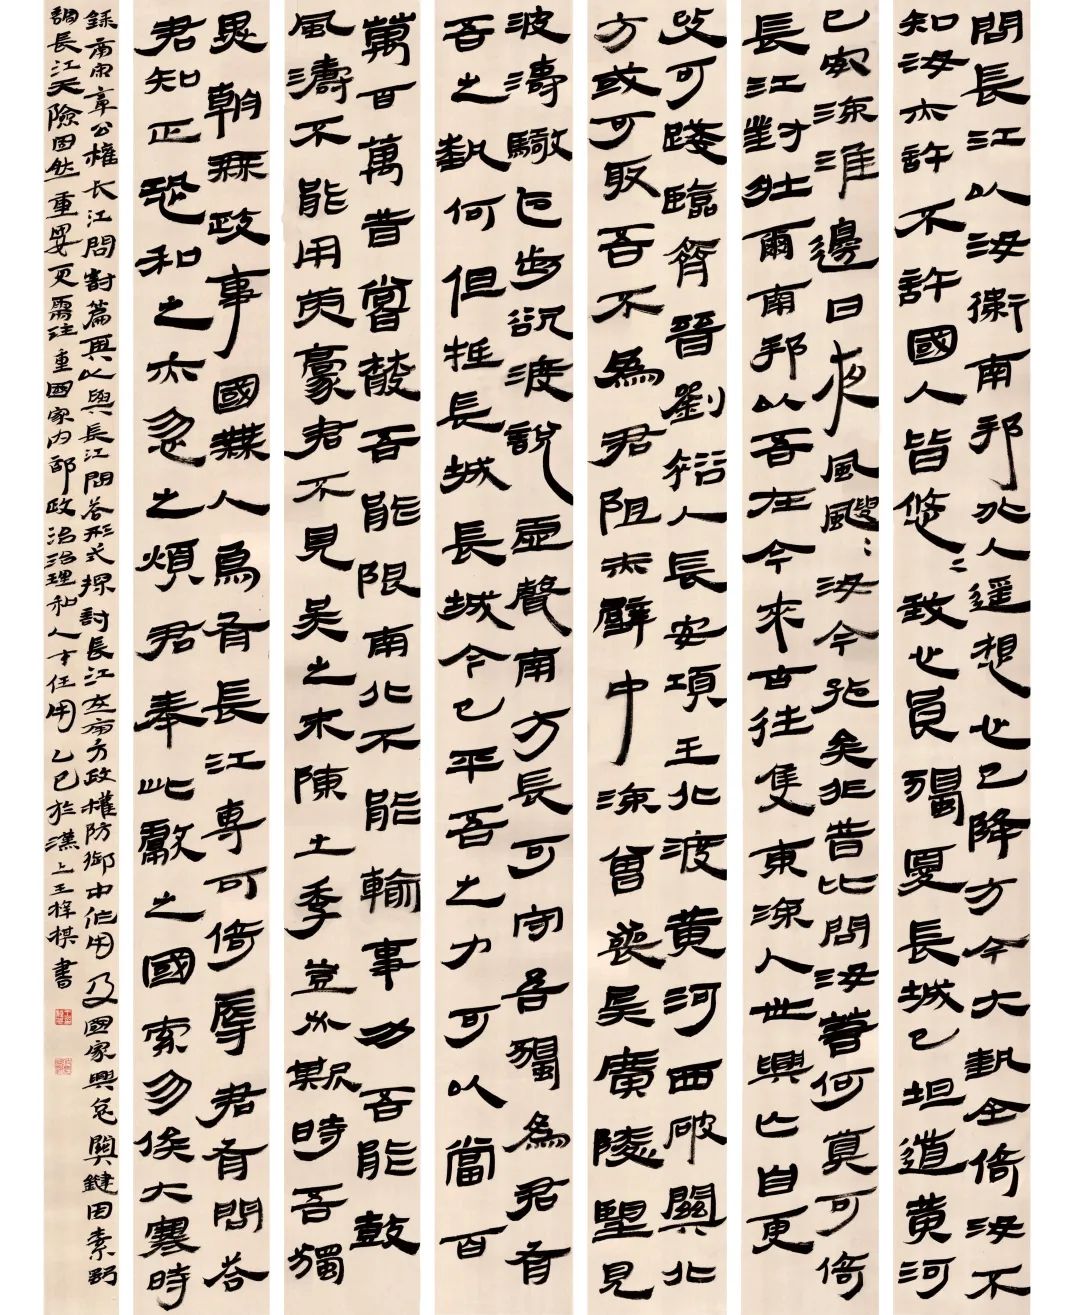 問長江以汝衛南邦北人遥想也已降方今大埶全倚汝不
知汝亦許不許國人皆悠二致也良獨憂長城已坦道黄河
已安流淮邊日夜風颼二汝今殆矣非昔比問汝著何莫可倚
長江對壯爾南邦以吾在今來古往隻東流人世興亡自更
迭可踐臨胥晉劉裕入長安項王北渡黄河西破關北
方或可取吾不為君阻赤壁中流曾喪吴廣陵望見
波濤驕步欲渡說虚聲南方長可守吾獨為君有
吾之埶何但班長城長城今已平吾之力可以當百
萬百萬昔嘗吾能限南北不能輸事功吾能鼓
風濤不能用英豪君不見吴之末陳之季豈必斯時吾獨
異朝無政事國無人焉有長江專可倚辱君有問答
君知正恐和之亦忽之煩君奉此獻之國索勿俟大寒時
録南宋章公權长江問對篇典以與長江問答形式探討長江在南方政權防御中作用及國家興危關鍵因素所
謂長江天險固然重要更需注重國家内部政治治理和人才任用乙巳於漢上王梓棋書